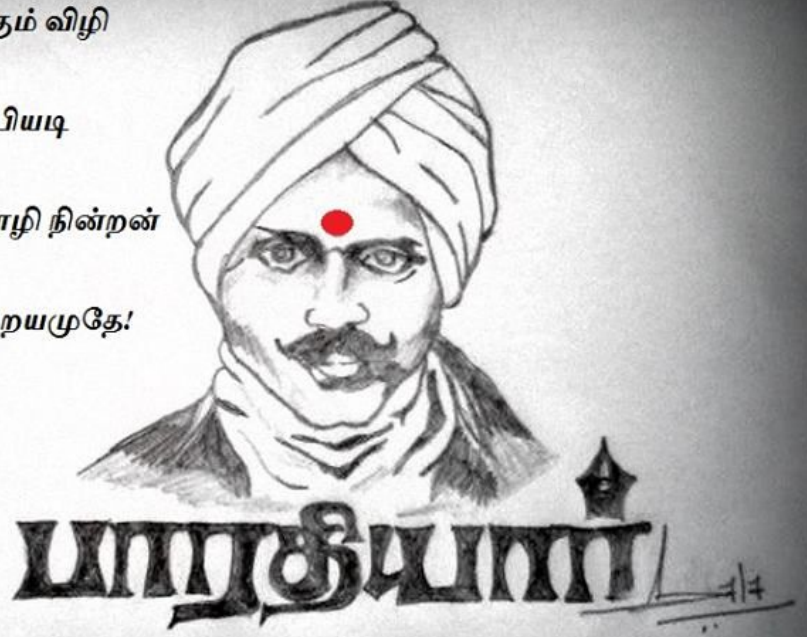 கும் விழி
பியடி
ாழி நின்றன்
றயமுதே!
பாரதியார்